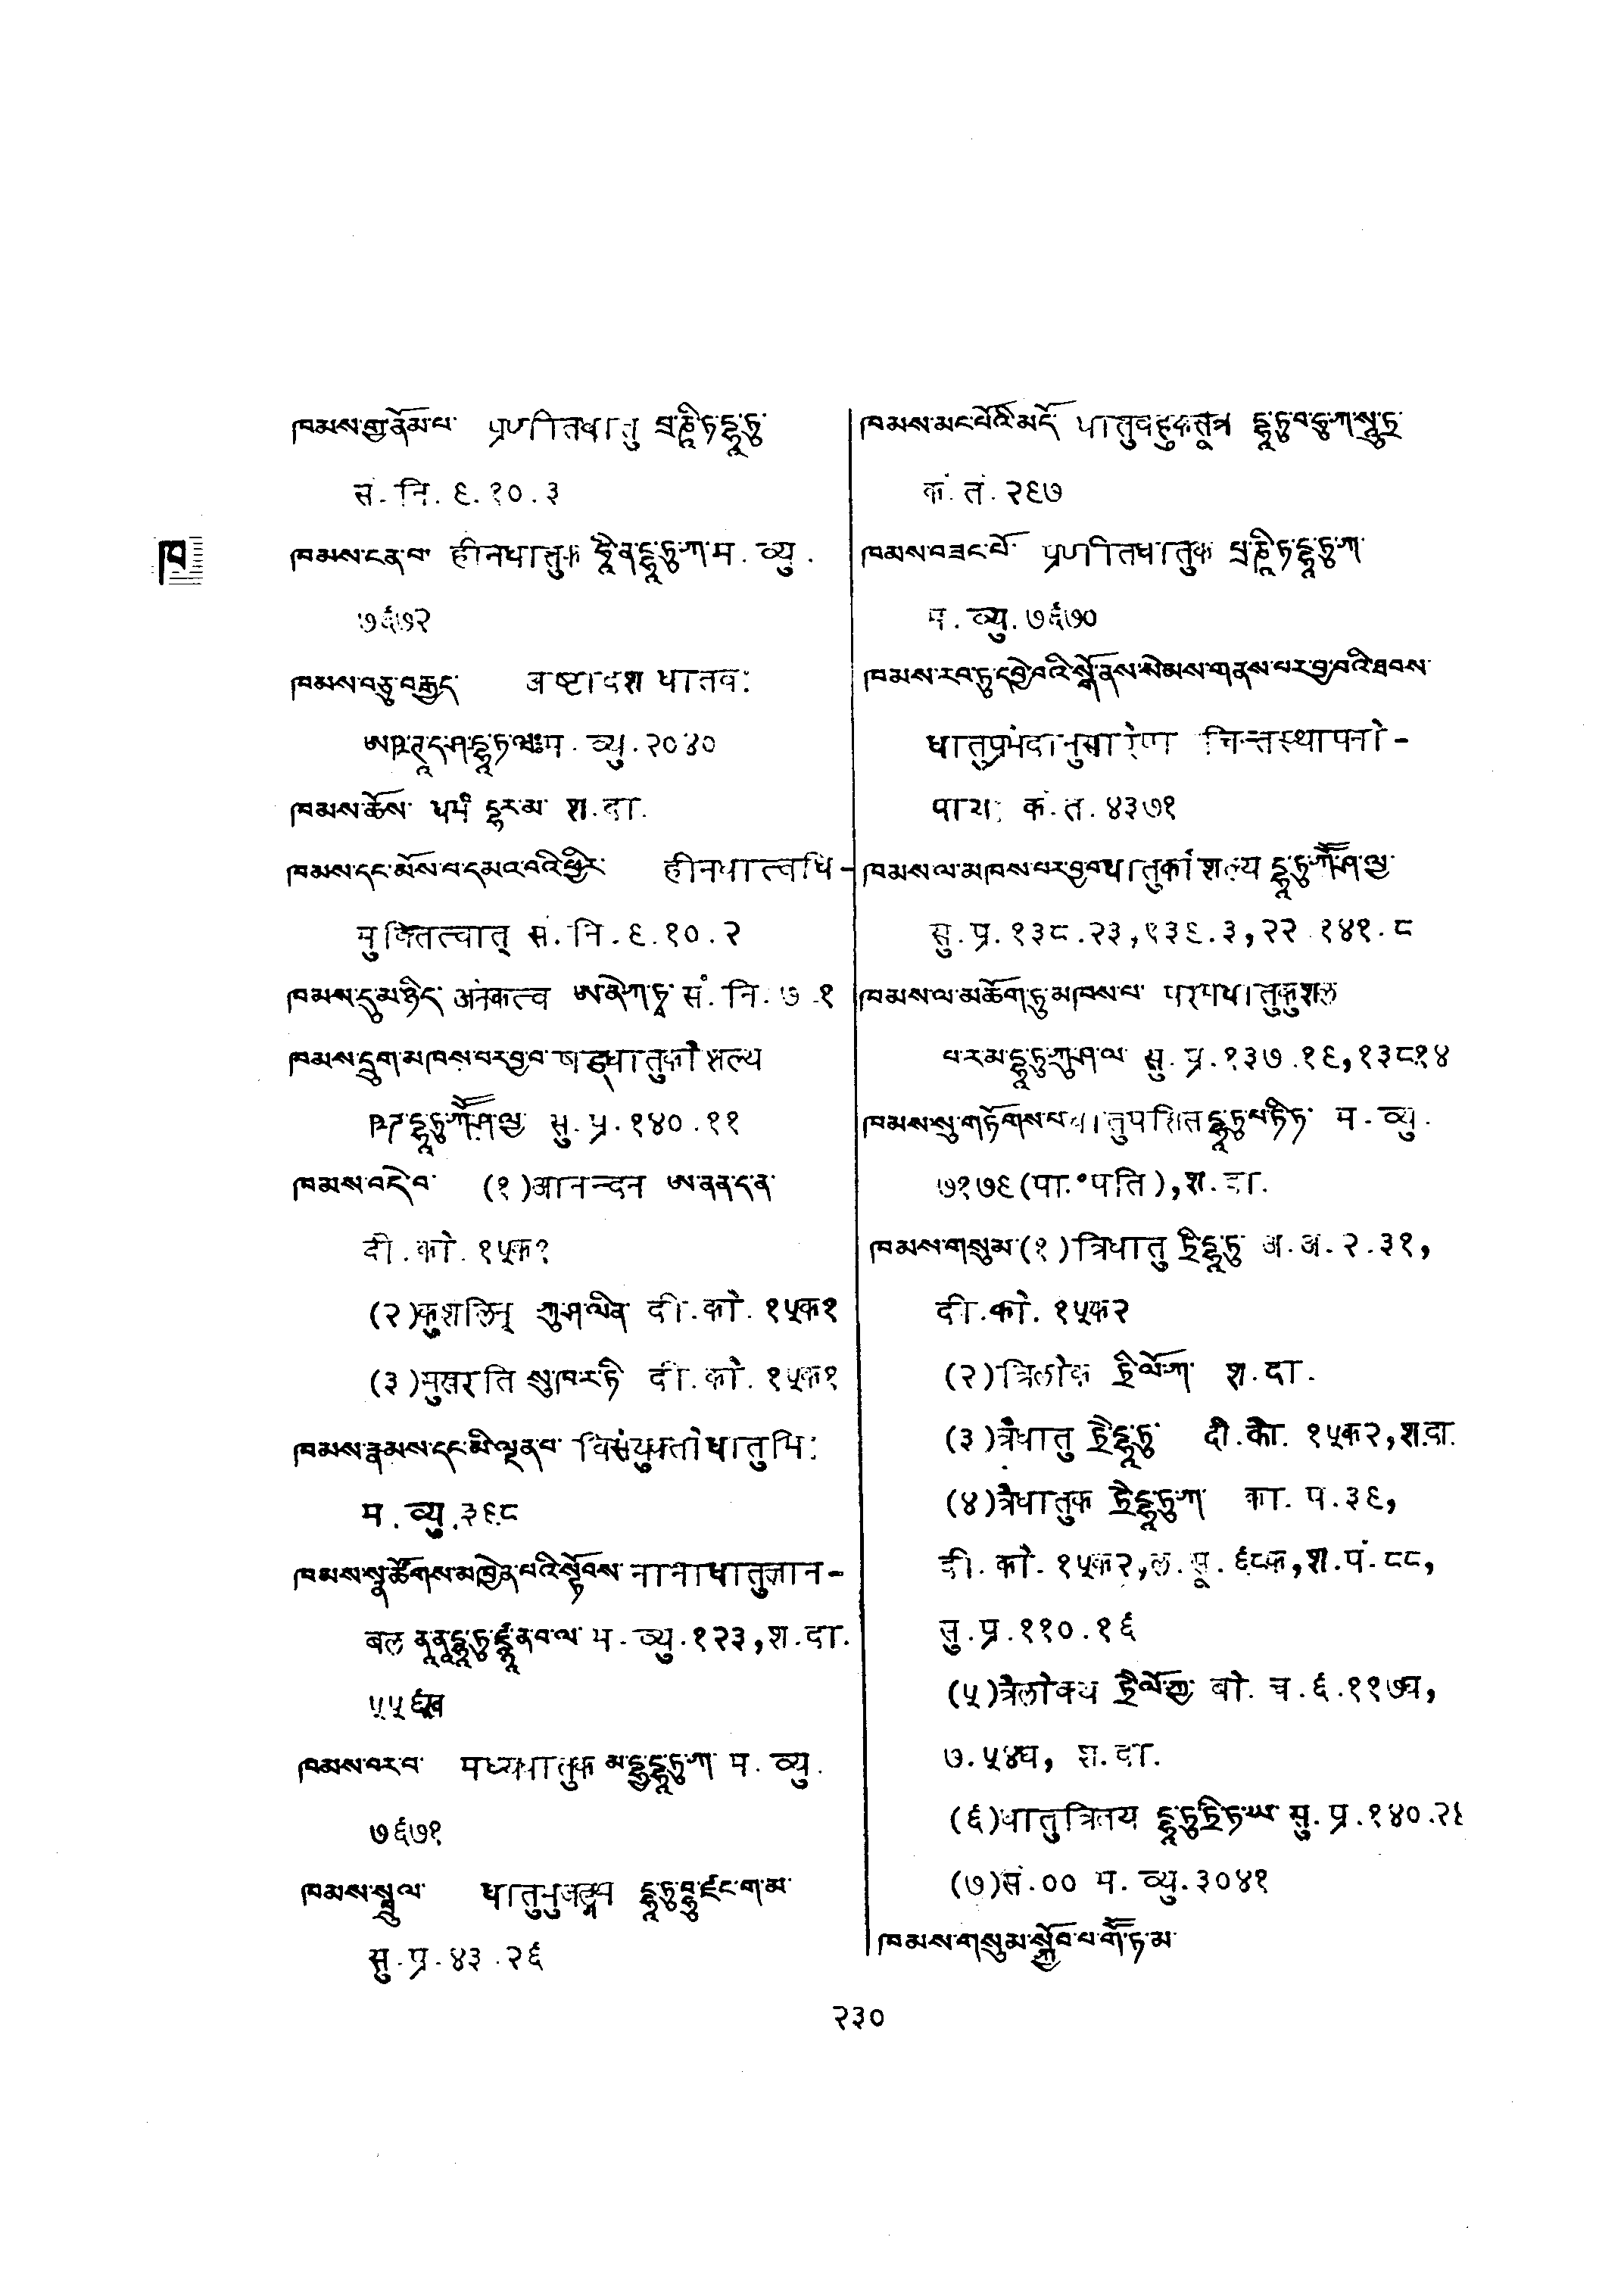 ཁ
ཁམས་གྱ་ནོམ་པ་ प्रणीतधातु པྲ་ཎཱི་ཏ་དྷཱ་ཏུ་
सं. नि. ९.१०.३
ཁམས་ངན་པ་ हीनधातुक ཧཱི་ན་དྷཱ་ཏུ་ཀ་ म. व्यु.
७६७२
ཁམས་བཅུ་བརྒྱད་ अष्टादश धातवः
ཨཥྚཱ་ད་ཤ་དྷཱ་ཏ་ཝཿ म. व्यु. २०४०
ཁམས་ཆོས་ धर्म དྷརྨ श.दा.
ཁམས་དང་མོས་པ་དམའ་བའི་ཕྱིར་ हीनधात्वधि-
मुक्तितत्वात् सं. नि. ९.१०.२
ཁམས་དུ་མ་ཉིད་ अनेकत्व ཨ་ནེ་ཀ་ཏྭ་ सं. नि. ७.१
ཁམས་དྲུག་མཁས་པར་བྱ་བ་ षड्धातुकौशल्य
ཥཌ་དྷཱ་ཏུ་ཀཽ་ཤ་ལྱ་ सु. प्र. १४०.११
ཁམས་བདེ་བ་ (१) आनन्दन ཨཱ་ནནྡ་ན་
दी.को. १५क१
(२) कुशलिन् ཀུ་ཤ་ལིན་ दी.को. १५क१
(३) सुखरति སུ་ཁ་ར་ཏི་ दी.को. १५क१
ཁམས་རྣམས་དང་མི་ལྡན་པ་ विसंयुक्तो धातुभिः
म. व्यु. ३९८
ཁམས་སྣ་ཚོགས་མཁྱེན་པའི་སྟོབས་ नानाधातुज्ञान-
बल ནཱ་ནཱ་དྷཱ་ཏུ་ཛྙཱ་ན་བ་ལ་ म. व्यु. १२३, श.दा.
५५६ख
ཁམས་བར་བ་ मध्यधातुक མ་དྷྱ་དྷཱ་ཏུ་ཀ་ म. व्यु.
७६७१
ཁམས་སྦྲུལ་ धातुभुजङ्गम དྷཱ་ཏུ་བྷུ་ཛངྒ་མ་
सु. प्र. ४३.२६
ཁམས་མང་པོའི་མདོ་ धातुबहुकसूत्र དྷཱ་ཏུ་བ་ཧུ་ཀ་སཱུ་ཏྲ་
कं. तं. २९७
ཁམས་བཟང་པོ་ प्रणीतधातुक པྲ་ཎཱི་ཏ་དྷཱ་ཏུ་ཀ་
म. व्यु. ७६७०
ཁམས་རབ་ཏུ་དབྱེ་བའི་སྒོ་ནས་སེམས་གནས་པར་བྱ་བའི་ཐབས་
धातुप्रभेदानुसारेण चित्तस्थापनो-
पायः कं. तं. ४३७१
ཁམས་ལ་མཁས་པར་བྱ་བ་ धातुकौशल्य དྷཱ་ཏུ་ཀཽ་ཤ་ལྱ་
सु. प्र. १३८.२३, १३९.३, २२ १४१.८
ཁམས་ལ་མཆོག་ཏུ་མཁས་པ་ परमधातुकुशल
པ་ར་མ་དྷཱ་ཏུ་ཀུ་ཤ་ལ་ सु. प्र. १३७.१९, १३८१४
ཁམས་སུ་གཏོགས་པ་ धातुपतित དྷཱ་ཏུ་པ་ཏི་ཏ་ म. व्यु.
७१७९ (पा.॰पति), श.दा.
ཁམས་གསུམ་ (१) त्रिधातु ཏྲི་དྷཱ་ཏུ་ अ.अ. २.३१,
दी.को. १५क२
(२) त्रिलोक ཏྲི་ལོ་ཀ་ श.दा.
(३) त्रैधातु ཏྲཻ་དྷཱ་ཏུ་ दी.को. १५क२, श.दा.
(४) त्रैधातुक ཏྲཻ་དྷཱ་ཏུ་ཀ་ का. प. ३९,
दी. को. १५क२, ल. पू. ६८क, श. पं. ८८,
सु. प्र. ११०.१६
(५) त्रैलोक्य ཏྲཻ་ལོ་ཀྱ་ बो. च. ६.११७घ,
७.५४घ, श.दा.
(६) धातुत्रितय དྷཱ་ཏུ་ཏྲི་ཏ་ཡ་ सु. प्र. १४०.२६
(७) सं.०० म. व्यु. ३०४१
ཁམས་གསུམ་སྐྱོབ་པ་གོཽ་ཏ་མ་
२३०